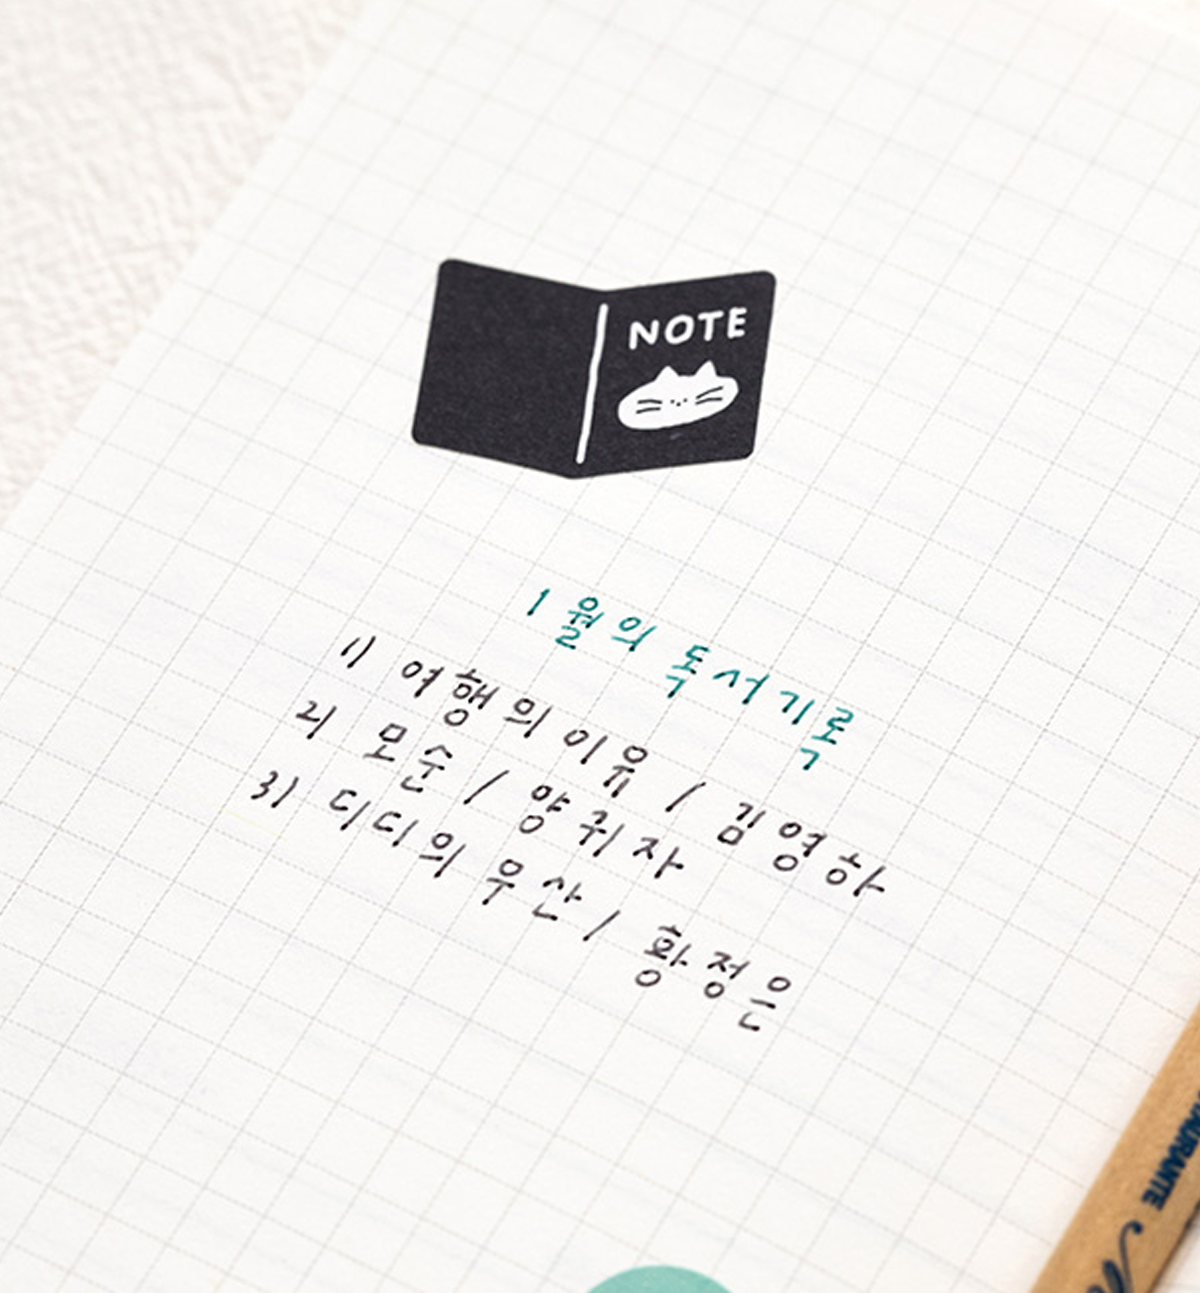 NOTE
1월의 독서기록
1) 여행의 이유 / 김영하
2) 모순 / 양귀자
3) 디디의 우산 / 황정은